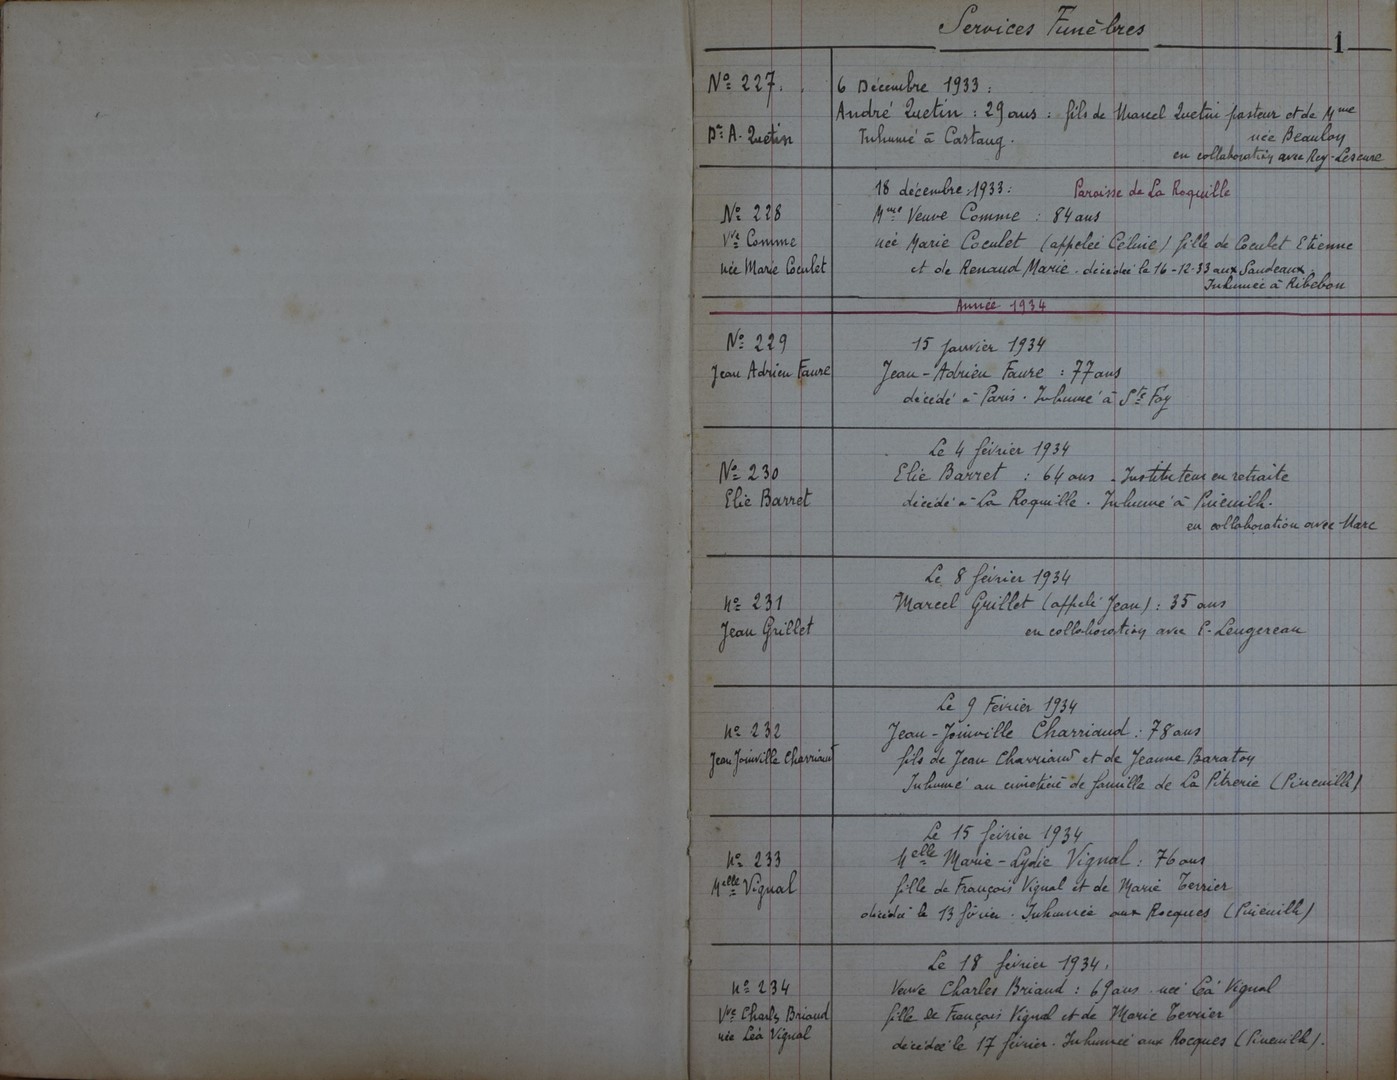 Services Funèbres
1
N° 227.
Dr A. Quetin
6 Décembre 1933 :
André Quetin : 29 ans : fils de Marcel Quetin pasteur et de Mme
née Beauloy
Inhumé à Castang.
en collaboration avec Rey-Lescure
N° 228
Vve Comme
née Marie Coculet
18 décembre 1933 : Paroisse de La Roquille
Mme Veuve Comme : 84 ans
née Marie Coculet (appelée Céline) fille de Coculet Etienne
et de Renaud Marie. décédée le 16-12-33 aux Sandeaux.
Inhumée à Ribebon
Année 1934
N° 229
Jean Adrien Faure
15 janvier 1934
Jean-Adrien Faure : 77 ans
décédé à Paris. Inhumé à Ste Foy
N° 230
Elie Barret
Le 4 février 1934
Elie Barret : 64 ans - Instituteur en retraite
décédé à La Roquille. Inhumé à Pineuilh.
en collaboration avec Marc
N° 231
Jean Grillet
Le 8 février 1934
Marcel Grillet (appelé Jean) : 35 ans
en collaboration avec P. Lengereau
N° 232
Jean Joinville Charriaud
Le 9 Février 1934
Jean-Joinville Charriaud : 78 ans
fils de Jean Charriaud et de Jeanne Baratoy
Inhumé au cimetière de famille de La Pitrerie (Pineuilh)
N° 233
Melle Vignal
Le 15 février 1934
Melle Marie-Lydie Vignal : 76 ans
fille de François Vignal et de Marie Terrier
décédée le 13 février. Inhumée aux Rocques (Pineuilh)
N° 234
Vve Charles Briaud
née Léa Vignal
Le 18 février 1934.
Veuve Charles Briaud : 69 ans née Léa Vignal
fille de François Vignal et de Marie Terrier
décédée le 17 février. Inhumée aux Rocques (Pineuilh).